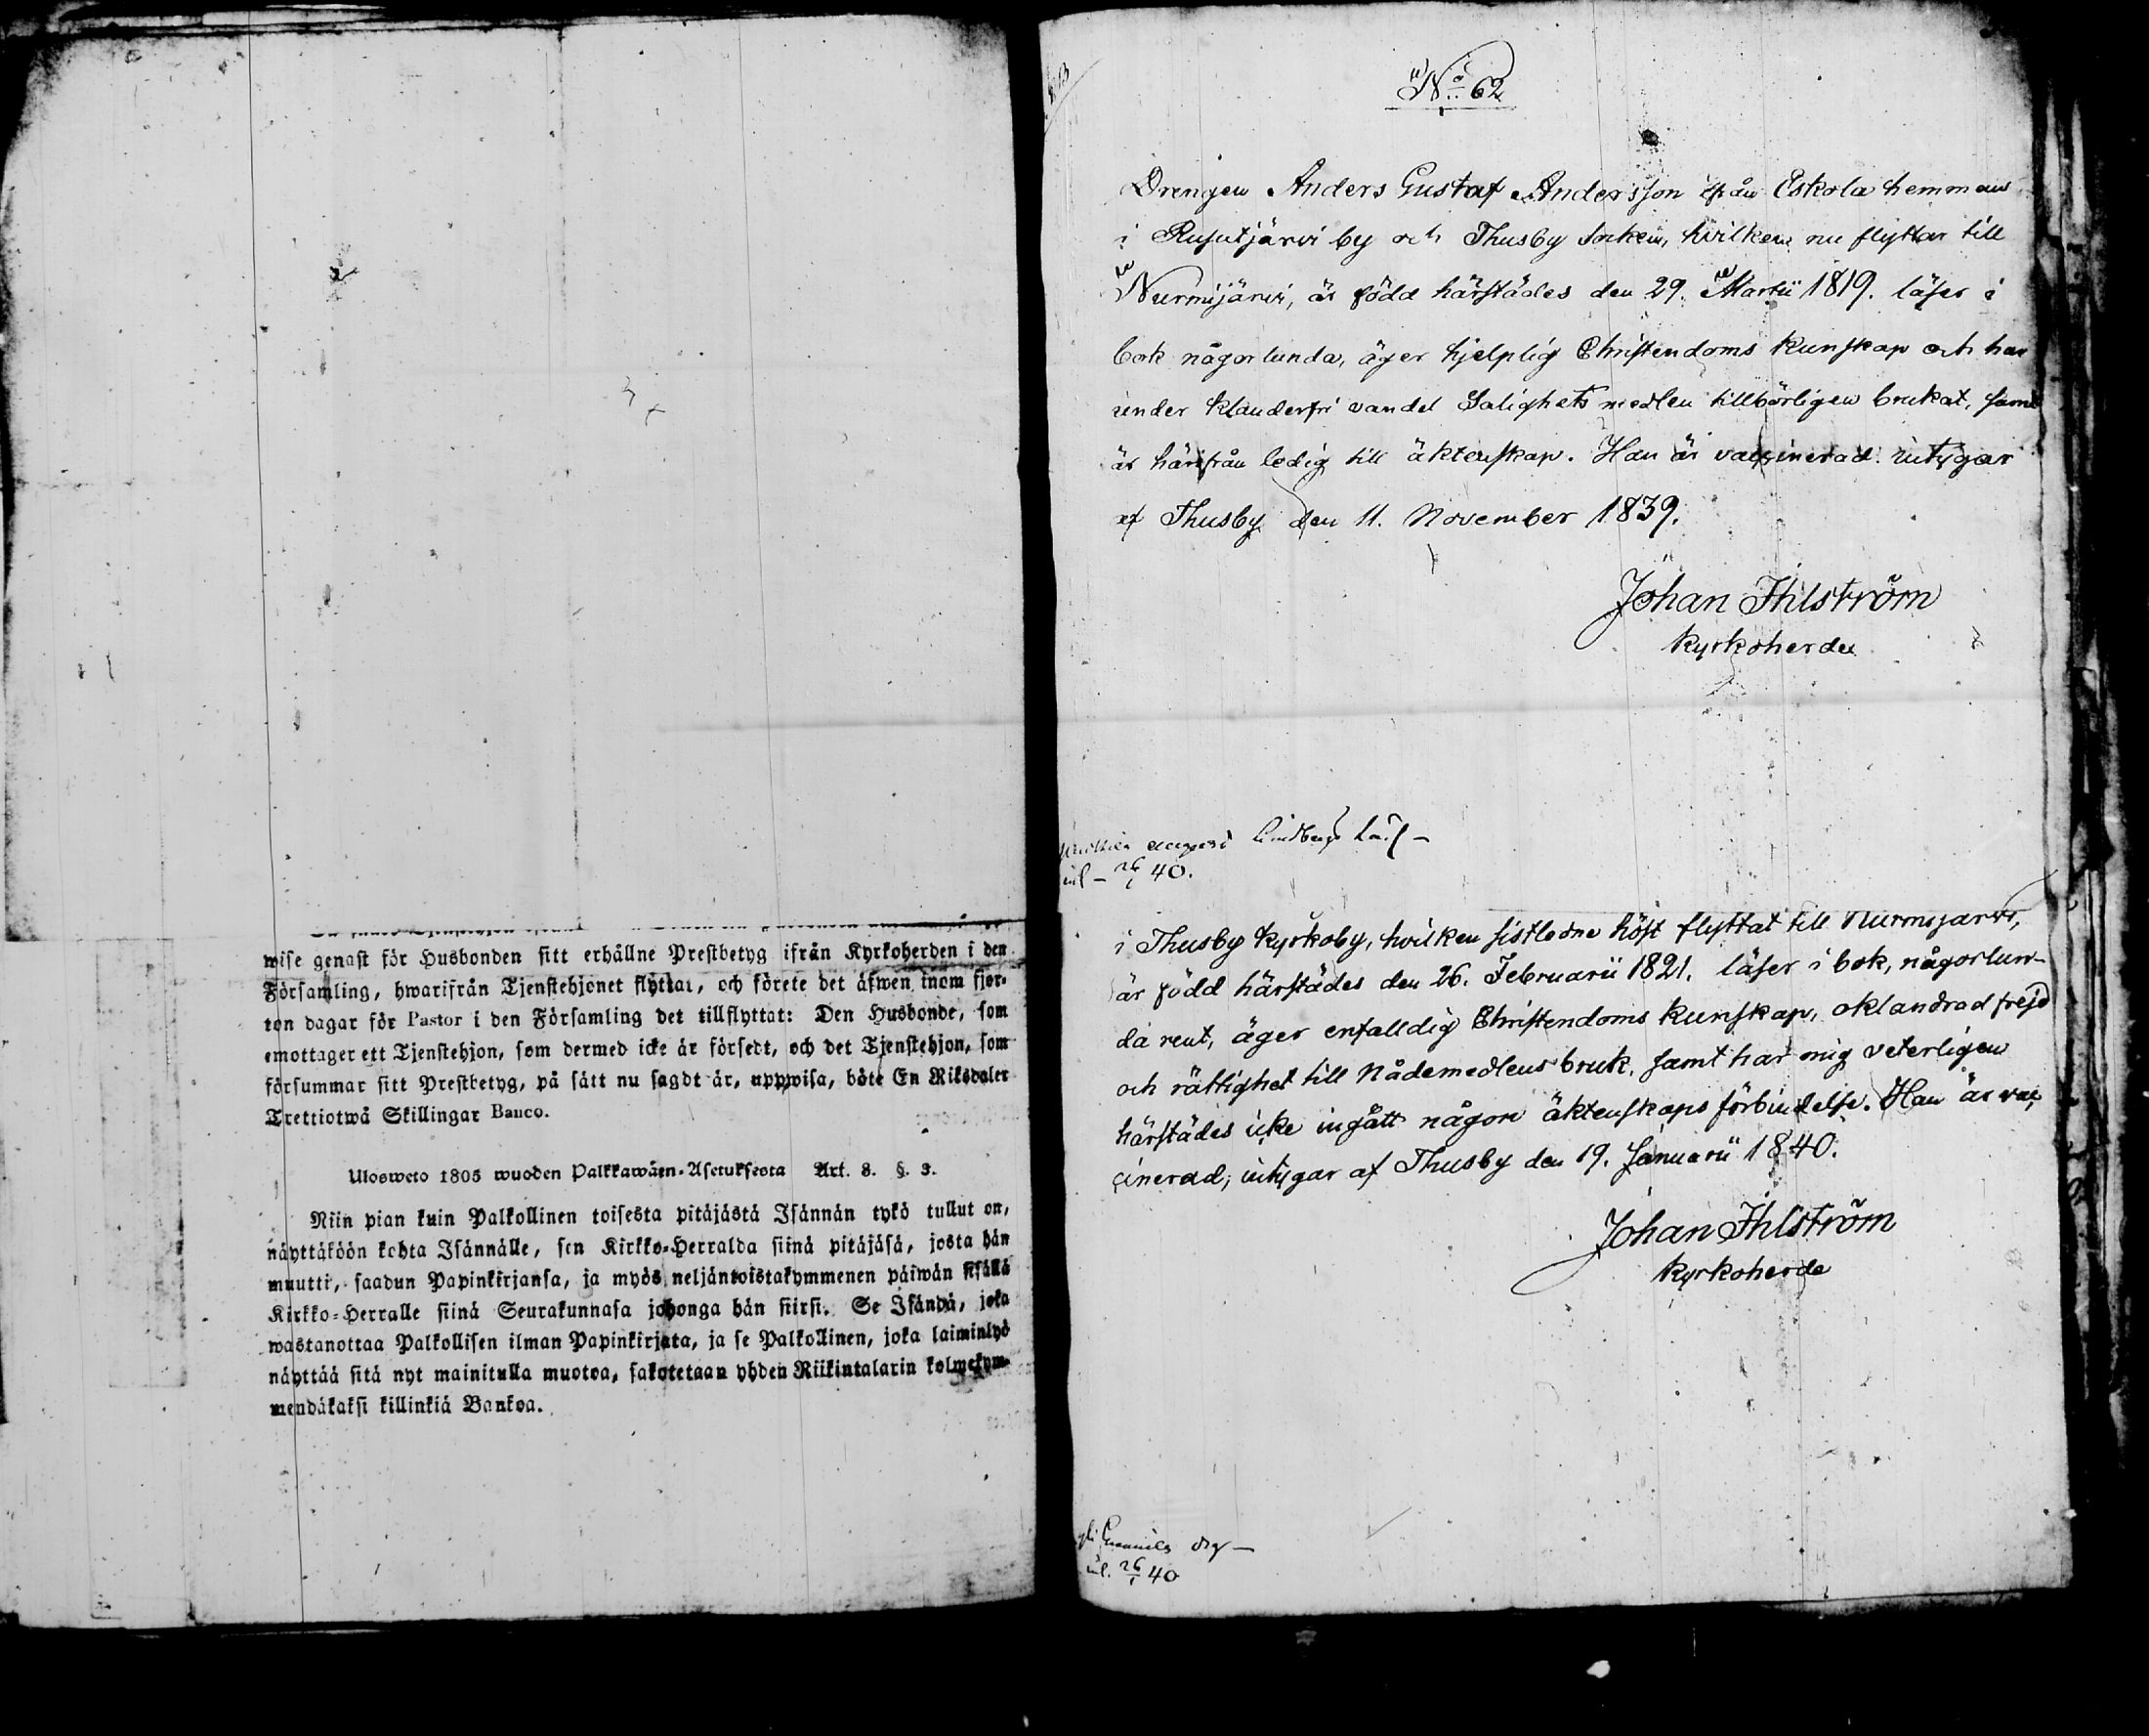 wise genast för Husbonden sitt erhållne Prestbetyg ifrån Kyrkoherden i den
Församling, hwarifrån Tjenstehjonet flyttat, och förete det äfwen inom fjor-
ton dagar för Pastor i den Församling det tillflyttat: Den Husbonde, som
emottager ett Tjenstehjon, som dermed icke är försedt, och det Tjenstehjon, som
försummar sitt Prestbetyg, på sätt nu sagdt är, uppwisa, böte En Riksdaler
Trettiotwå Skillingar Banco.
Ulosweto 1805 wuoden Palkkawäen-Asetuksesta Art. 8. §. 3.
Niin pian kuin Palkollinen toisesta pitäjästä Isännän tykö tullut on,
näyttäköön kohta Isännälle, sen Kirkko-Herralda siinä pitäjäsä, josta hän
muutti, saadun Papinkirjansa, ja myös neljäntoistakymmenen päiwän sisällä
Kirkko-Herralle siinä Seurakunnasa johonga hän siirsi. Se Isändä, joka
wastanottaa Palkollisen ilman Papinkirjata, ja se Palkollinen, joka laiminlyö
näyttää sitä nyt mainitulla muotoa, sakotetaan yhden Riikintalarin kolmekym-
mendäkaksi killinkiä Bankoa.
No 62
Drengen Anders Gustaf Andersson ifrån Eskola hemman
i Rusutjärvi by och Thusby Socken, hvilken nu flyttar till
Nurmijärvi, är född härstädes den 29. Martii 1819. läser i
bok någorlunda, äger hjelplig Christendoms kunskap och har
under klanderfri vandel Salighets medlen tillbörligen brukat, samt
är härifrån ledig till äktenskap. Han är vaccinerad. intygar
af Thusby den 11. November 1839.
Johan Ihlström
Kyrkoherde
Lindberg
26/1 40.
i Thusby Kyrkoby, hvilken sistledne höst flyttat till Nurmijärvi,
är född härstädes den 26. Februarii 1821. läser i bok, någorlun-
da rent, äger enfalldig Christendoms kunskap, oklandrad frejd
och rättighet till Nådemedlens bruk, samt har mig veterligen
härstädes icke ingått någon äktenskaps förbindelse. Han är vac
cinerad; intygar af Thusby den 19. Januarii 1840.
Johan Ihlström
Kyrkoherde
26/1 40